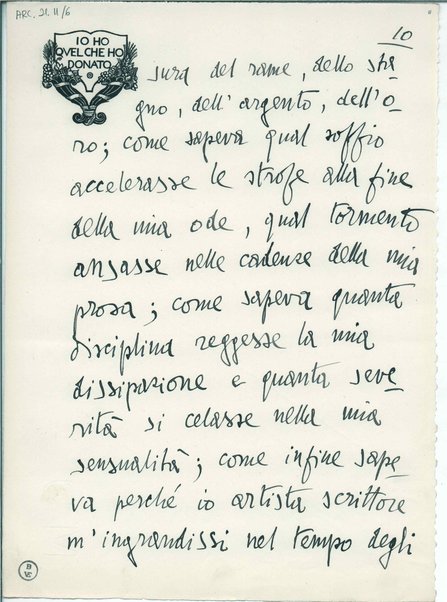 ARC. 21. II/6
10
IO HO
QVEL CHE HO
DONATO
sura del rame, dello sta-
gno, dell'argento, dell'o-
ro; come sapeva qual soffio
accelerasse le strofe alla fine
della mia ode, qual tormento
ansasse nelle cadenze della mia
prosa; come sapeva quanta
disciplina reggesse la mia
dissipazione e quanta seve-
rità si celasse nella mia
sensualità; come infine sape-
va perché io artista scrittore
m'ingrandissi nel tempo degli